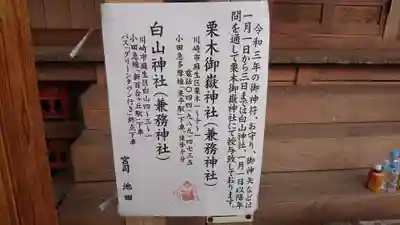 令和三年の御神符、お守り、御神矢などは
一月一日から三日までは白山神社、一月一日以降年
間を通して栗木御嶽神社にて授与致しております。
栗木御嶽神社（兼務神社）
川崎市麻生区栗木
電話〇四四（九八九）四七三五
小田急多摩線 下車、徒歩十分
白山神社（兼務神社）
川崎市麻生区白山四
小田急線「新百合ヶ丘駅」下車
バス「グリーンタウン行き」終点下車
宮司 池田